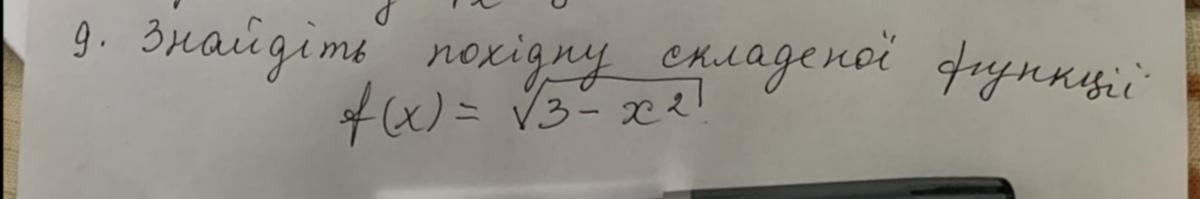 9. Знайдіть похідну складеної функції
f(x) = √3 - x²